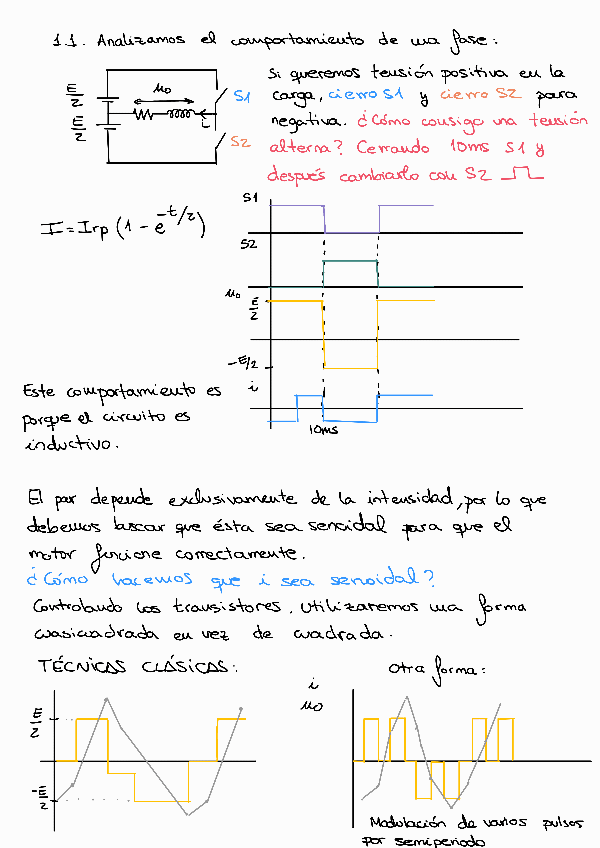 1.1. Analizamos el comportamiento de una fase:
Si queremos tensión positiva en la
carga, cierro S1 y cierro S2 para
negativa. ¿Cómo consigo una tensión
alterna? Cerrando 10ms S1 y
después cambiarlo con S2
E/2
E/2
u₀
S1
i
S2
I = Irp (1 - e^-t/τ)
S1
S2
u₀ E/2
-E/2
i
10ms
Este comportamiento es
porque el circuito es
inductivo.
El par depende exclusivamente de la intensidad, por lo que
debemos buscar que ésta sea senoidal para que el
motor funcione correctamente.
¿Cómo hacemos que i sea senoidal?
Controlando los transistores. Utilizaremos una forma
cuasicuadrada en vez de cuadrada.
TÉCNICAS CLÁSICAS:
Otra forma:
i
u₀
E/2
-E/2
Modulación de varios pulsos
por semiperiodo